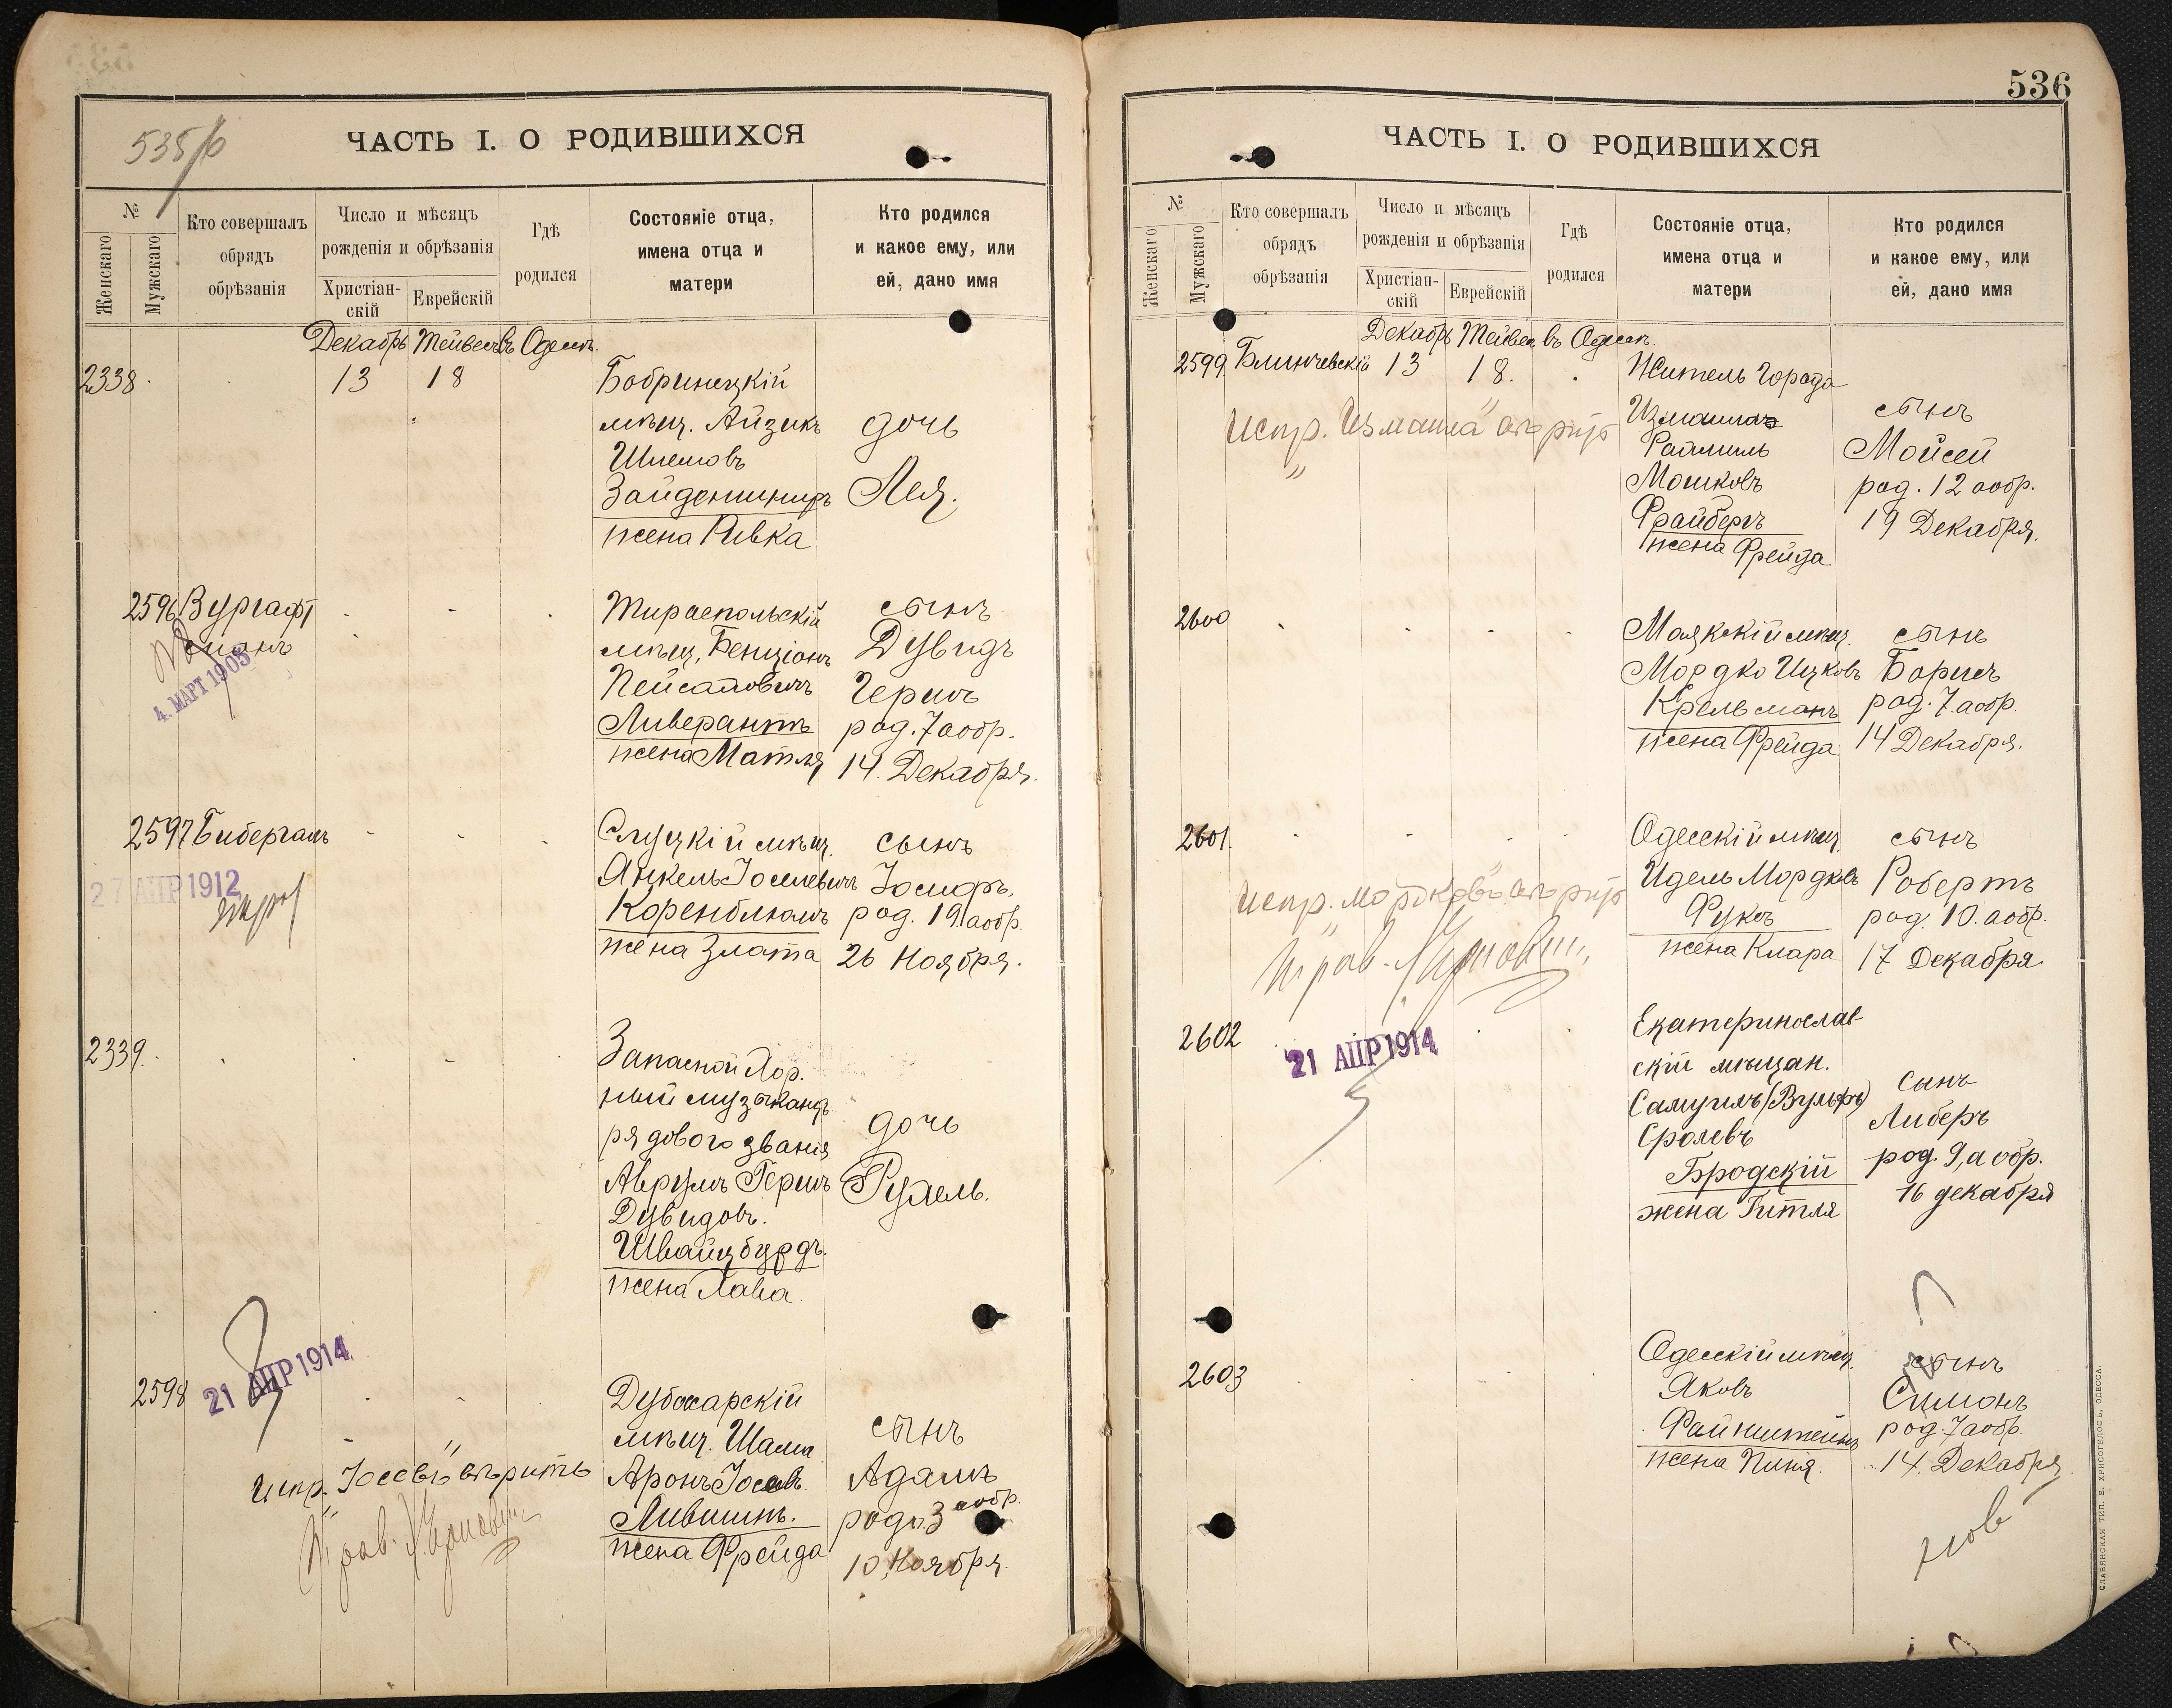 535/б
ЧАСТЬ I. О РОДИВШИХСЯ
№
Женскаго
Мужскаго
Кто совершалъ
обрядъ
обрѣзанія
Число и мѣсяцъ
рожденія и обрѣзанія
Христіан-
скій
Еврейскій
Гдѣ
родился
Состояніе отца,
имена отца и
матери
Кто родился
и какое ему, или
ей, дано имя
Декабрь Тейвесъ въ Одессѣ.
2338
13
18
Бобринецкій
мѣщ. Айзикъ
Шлемовъ
жена Ривка
дочь
Лея.
2596
Вургафт
4. МАРТ 1905
Тираспольскій
мѣщ. Бенціонъ
Ливерантъ
жена Матля
сынъ
Дувидъ
Гершъ
род. 7 а обр.
14. Декабря.
2597
Бибергаль
27 АПР 1912
Слуцкій мѣщ.
Янкель Іоселевичъ
Коренблюмъ
жена Злата
сынъ
Іосифъ.
род. 19. а обр.
26 Ноября.
2339.
Запасной Хор.
ный музыкантъ
рядового званія
Аврумъ Гершъ
Дувидовъ.
Швайцбурдъ.
жена Хава.
дочь
Рухель.
2598
21 АПР 1914
испр. „Іосевъ" вѣрить
Дубосарскій
мѣщ. Шама
Аронъ Іосевъ
Лившинъ.
жена Фрейда
сынъ
Адамъ
род. 3 а обр.
10 Ноября.
536
ЧАСТЬ I. О РОДИВШИХСЯ
№
Женскаго
Мужскаго
Кто совершалъ
обрядъ
обрѣзанія
Число и мѣсяцъ
рожденія и обрѣзанія
Христіан-
скій
Еврейскій
Гдѣ
родился
Состояніе отца,
имена отца и
матери
Кто родился
и какое ему, или
ей, дано имя
Декабрь Тейвесъ въ Одессѣ.
2599.
Блинчевскій
13
18.
испр. „Измаила" вѣрить
Житель Города
Измаила
Мошковъ
Фрайбергъ
жена Фрейда
сынъ
Мойсей
род. 12 а обр.
19 Декабря.
2600
Маякскій мѣщ.
Мордко Ицковъ
жена Фрейда
сынъ
Борисъ
род. 7. а обр.
14 Декабря.
2601.
испр. „Мордковъ" вѣрить
Одесскій мѣщ.
Идель Мордковъ
Фуксъ
жена Клара
сынъ
Робертъ
род. 10. а обр.
17 Декабря
2602
21 АПР 1914
Екатеринослав-
скій мѣщан.
Самуилъ (Вульфъ)
Сролевъ
Бродскій
жена Гитля
сынъ
Либеръ
род. 9, а обр.
16 декабря
2603
Одесскій мѣщ.
Яковъ
Файнштейнъ
жена Пиня.
сынъ
Симонъ
род. 7 а обр.
14. Декабря
СЛАВЯНСКАЯ ТИП. Е. ХРИСОГЕЛОСЪ, ОДЕССА.